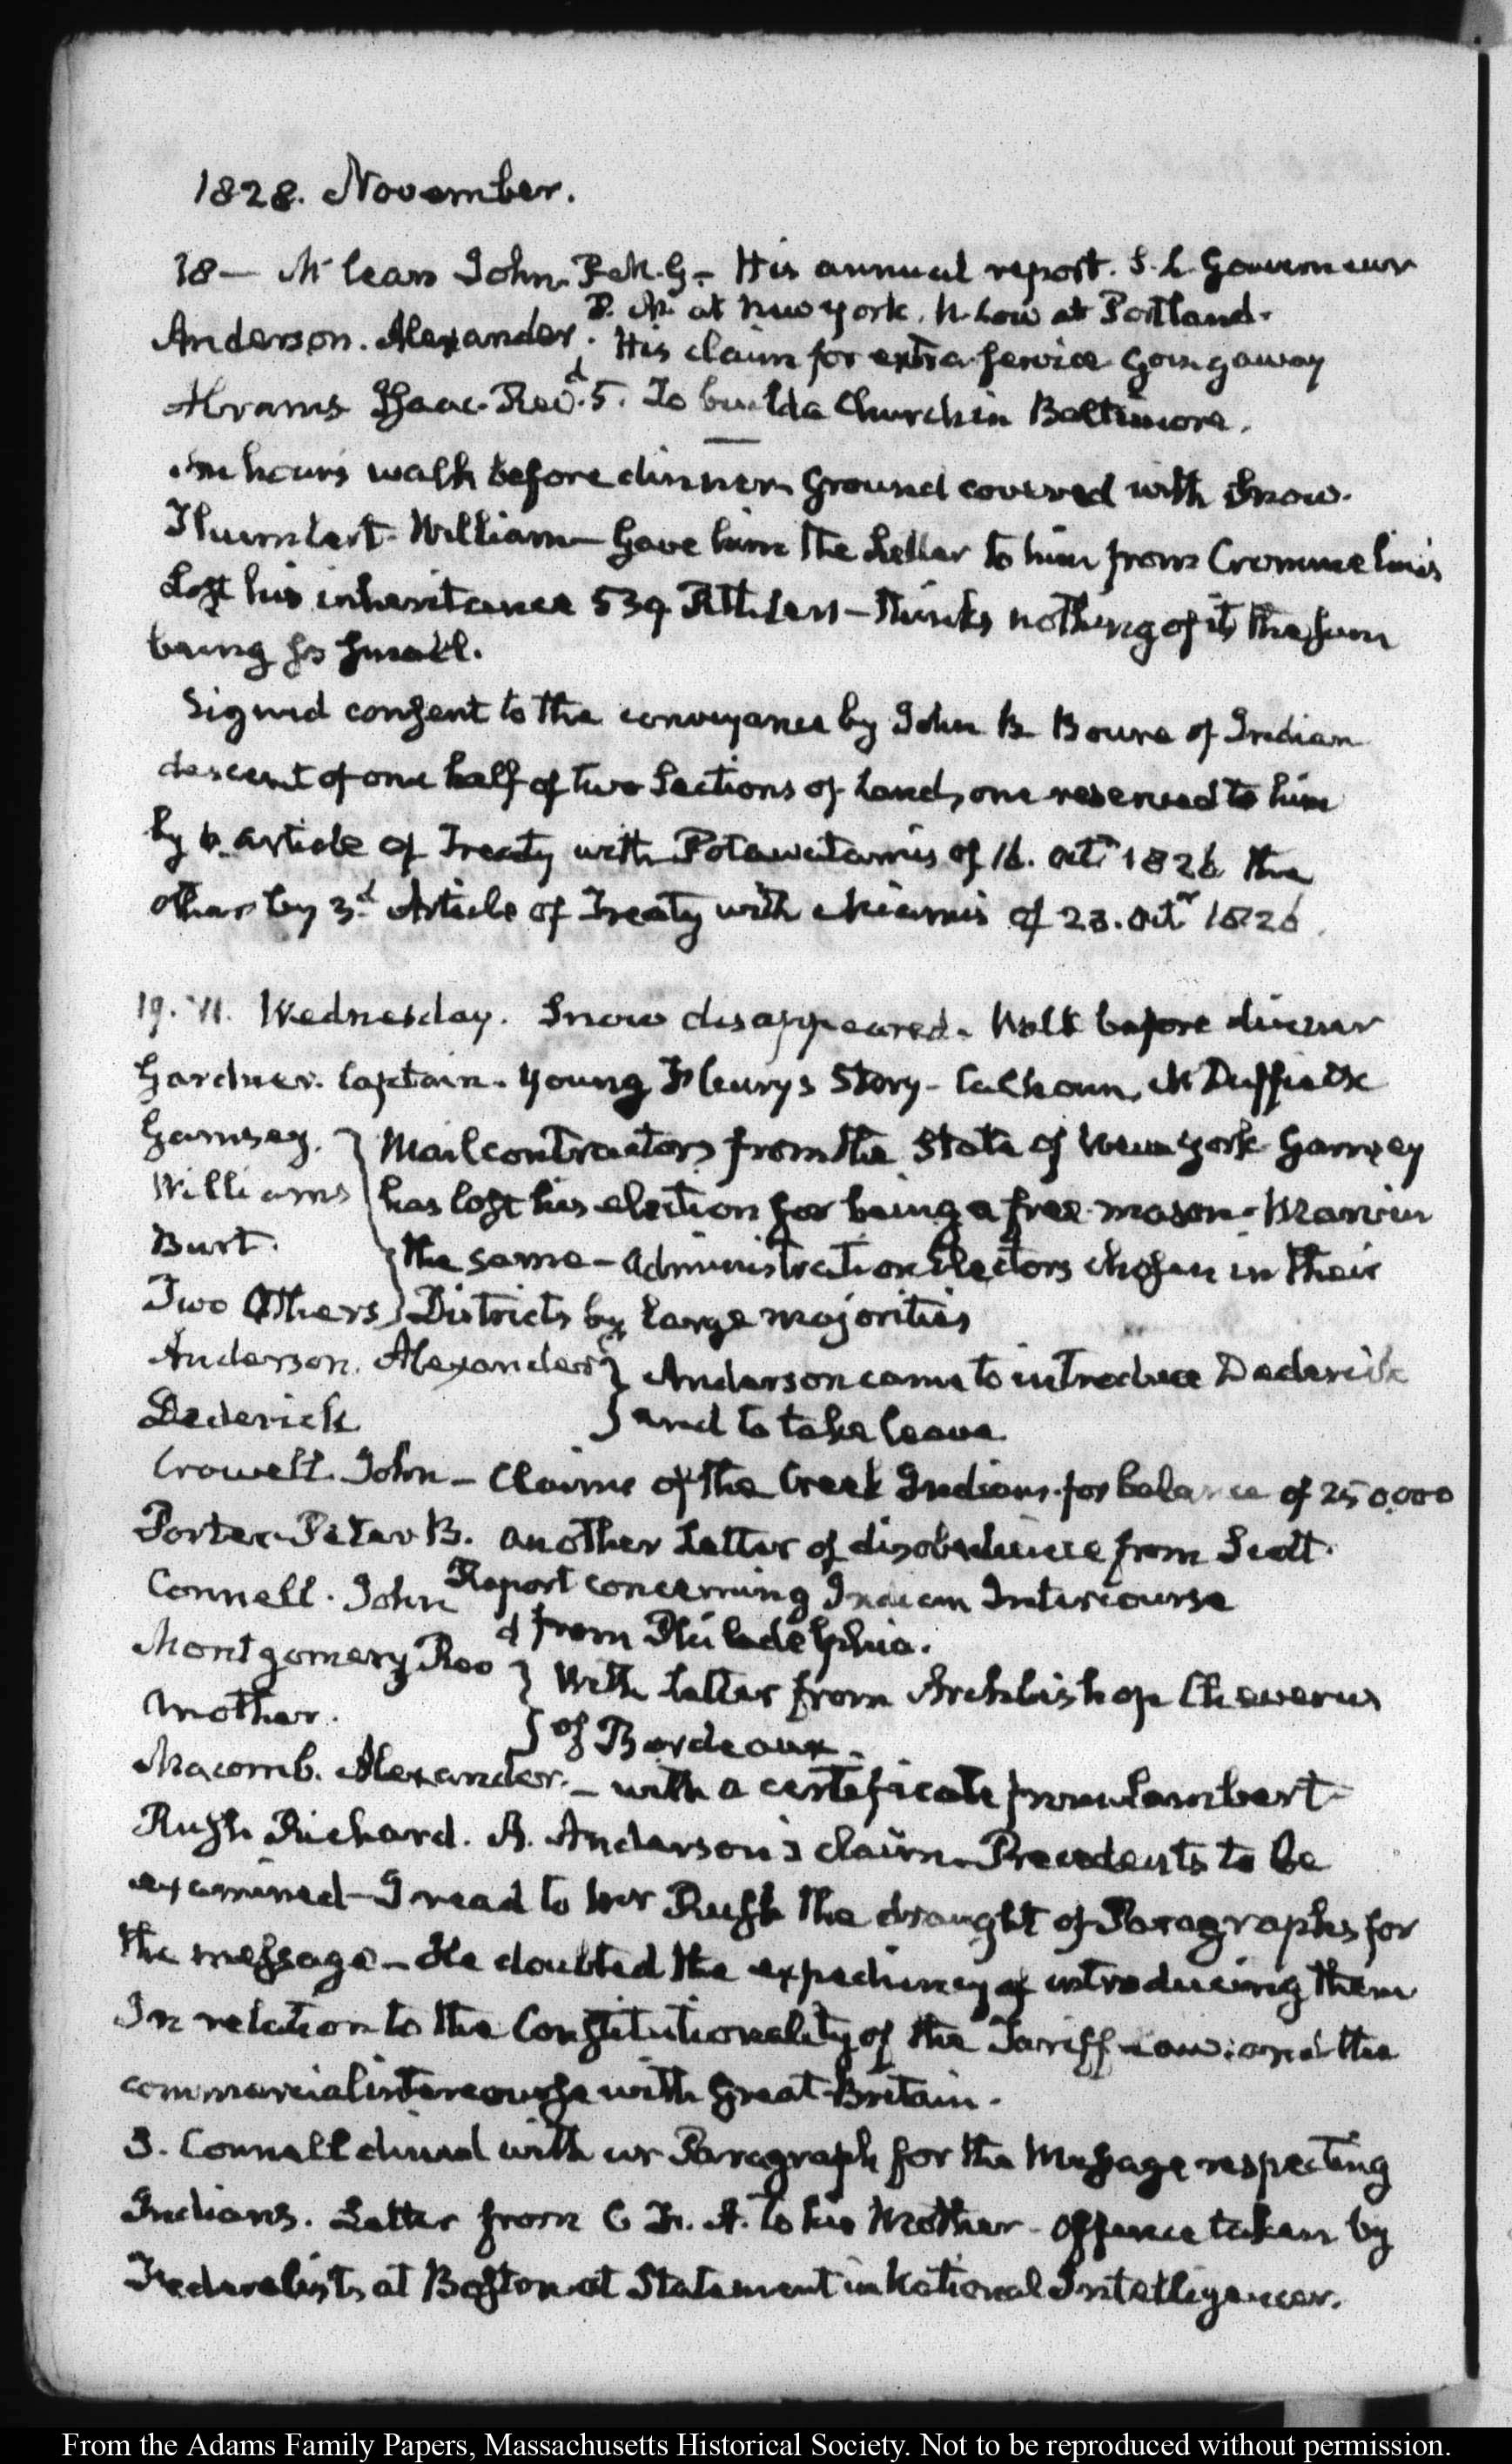 1828. November.
18— McLean John. P. M. G. — His annual report. S. L. Gouverneur
P. M. at New York. N. Low at Portland.
Anderson. Alexander. His claim for extra service going away
Abrams Isaac. Revd. 5. To build a Church in Baltimore.
An hours walk before dinner. Ground covered with snow.
William — Gave him the Letter to him from Crommelins
Lost his inheritance 539 — thinks nothing of it, the sum
being so small.
Signed consent to the conveyance by John B. Boure of Indian
descent of one half of two Sections of Land, one reserved to him
by 6. article of Treaty with Potawatamis of 16. Octr. 1826 the
other by 3d. Article of Treaty with Miamis of 23. Octr 1826.
19. VI. Wednesday. Snow disappeared. Walk before dinner
Gardner. Captain. Young Fleury's Story — Calhoun, McDuffie &c
Garnsey. } Mail contractors from the State of New York Garnsey
Williams } has lost his election for being a free-mason. Marvin
Burt. } the same — Administration Electors chosen in their
Two Others } Districts by large majorities
Anderson. Alexander } Anderson came to introduce Dederick
Dederick } and to take leave.
Crowell. John — Claims of the Creek Indians for balance of 250,000
Porter. Peter B. Another Letter of disobedience from Scott.
Report concerning Indian Intercourse
Connell. John from Philadelphia.
Montgomery Revd } With letter from Archbishop Cheverus
Another. } of Bordeaux.
Macomb. Alexander. — with a certificate from Lambert
Rush Richard. A. Anderson's claim. Precedents to be
examined — I read to Mr Rush the draught of Paragraphs for
the message — He doubted the expediency of introducing them
In relation to the Constitutionality of the Tariff Law: and the
commercial intercourse with Great-Britain.
J. Connell dined with us Paragraph for the Message respecting
Indians. Letter from C. F. A. to his Mother — Offence taken by
Federalists at Boston at Statement in National Intelligencer.
From the Adams Family Papers, Massachusetts Historical Society. Not to be reproduced without permission.